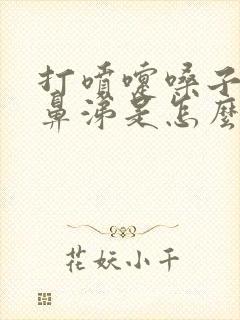 打噴嚏嗓子
鼻涕是怎麼
花妖小千